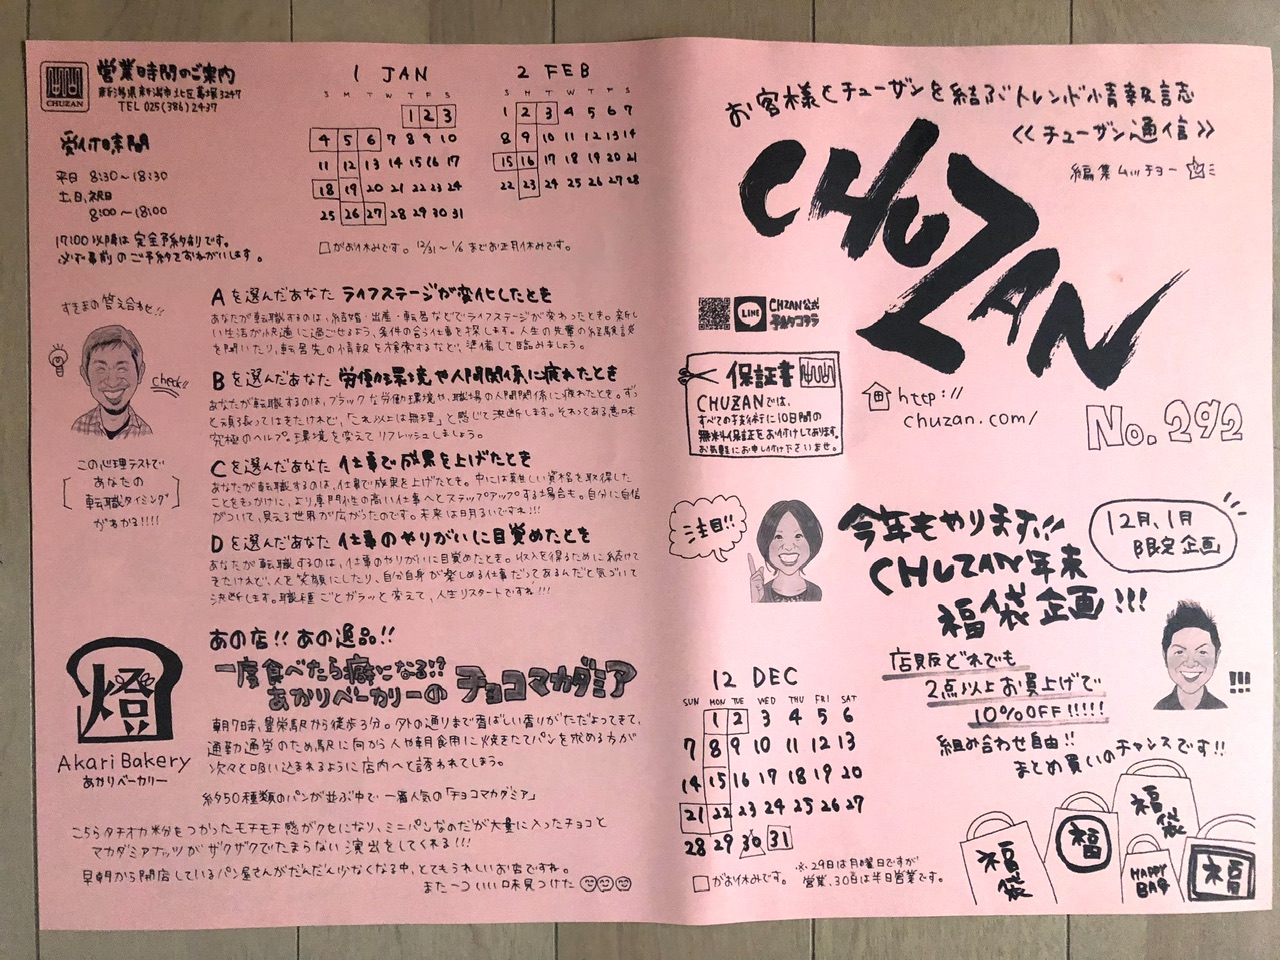 営業時間のご案内
新潟県新潟市北区葛塚3247
TEL 025(386)2437
CHUZAN
受付時間
平日 8:30〜18:30
土、日、祝日
8:00〜18:00
17:00以降は完全予約制です。
必ず事前のご予約をおねがいします。
1 JAN
S M T W T F S
1 2 3
4 5 6 7 8 9 10
11 12 13 14 15 16 17
18 19 20 21 22 23 24
25 26 27 28 29 30 31
2 FEB
S M T W T F S
1 2 3 4 5 6 7
8 9 10 11 12 13 14
15 16 17 18 19 20 21
22 23 24 25 26 27 28
□がお休みです。 12/31〜1/6 までお正月休みです。
すきまの答え合わせ!!
check!!
この心理テストで
あなたの
転職タイミング
がわかる!!!!
Aを選んだあなた ライフステージが変化したとき
あなたが転職するのは、結婚・出産・転居などでライフステージが変わったとき。新し
い生活が快適に過ごせるよう、条件の合う仕事を探します。人生の先輩の経験談
を聞いたり、転居先の情報を検索するなど、準備して臨みましょう。
Bを選んだあなた 労働環境や人間関係に疲れたとき
あなたが転職するのは、ブラックな労働環境や、職場の人間関係に疲れたとき。ずっ
と頑張ってはきたけれど、「これ以上は無理」と感じて決断します。それってある意味
究極のヘルプ。環境を変えてリフレッシュしましょう。
Cを選んだあなた 仕事で成果を上げたとき
あなたが転職するのは、仕事で成果を上げたとき。中には難しい資格を取得した
ことをきっかけに、より専門性の高い仕事へとステップアップする場合も。自分に自信
がついて、見える世界が広がったのです。未来は明るいですね!!!
Dを選んだあなた 仕事のやりがいに目覚めたとき
あなたが転職するのは、仕事のやりがいに目覚めたとき。収入を得るために続けて
きたけれど、人を笑顔にしたり、自分自身が楽しめる仕事だってあるんだと気づいて
決断します。職種ごとガラッと変えて、人生リスタートですね!!!
燈
Akari Bakery
あかりベーカリー
あの店!! あの逸品!!
一度食べたら癖になる!?
あかりベーカリーの チョコマカダミア
朝7時、豊栄駅から徒歩3分。外の通りまで香ばしい香りがただよってきて、
通勤通学のため駅に向かう人や朝食用に焼きたてパンを求める方が
次々と吸い込まれるように店内へと誘われてしまう。
約50種類のパンが並ぶ中で一番人気の「チョコマカダミア」
こちらタチオカ粉をつかったモチモチ感がクセになり、ミニパンなのだが大量に入ったチョコと
マカダミアナッツがザクザクでたまらない演出をしてくれる!!!
早朝から開店しているパン屋さんがだんだん少なくなる中、とてもうれしいお店ですね。
また一ついい味見つけた
お客様とチューザンを結ぶトレンド情報誌
≪チューザン通信≫
編集ムッチョー
CHUZAN
LINE
CHZAN公式
予約はコチラ
保証書
CHUZANでは、
すべての技術に10日間の
無料保証をお付けしております。
お気軽にお申し付け下さいませ。
http://
chuzan.com/
No.292
注目!!
今年もやります!!
CHUZAN年末
福袋企画!!!
12月、1月
限定企画
店販どれでも
2点以上お買上げで
10%OFF!!!!!
!!!
組み合わせ自由!!
まとめ買いのチャンスです!!
12 DEC
SUN MON TUE WED THU FRI SAT
1 2 3 4 5 6
7 8 9 10 11 12 13
14 15 16 17 18 19 20
21 22 23 24 25 26 27
28 29 30 31
□がお休みです。
※29日は月曜日ですが
営業、30日は半日営業です。
福袋
福
福袋
HAPPY
BAG
福